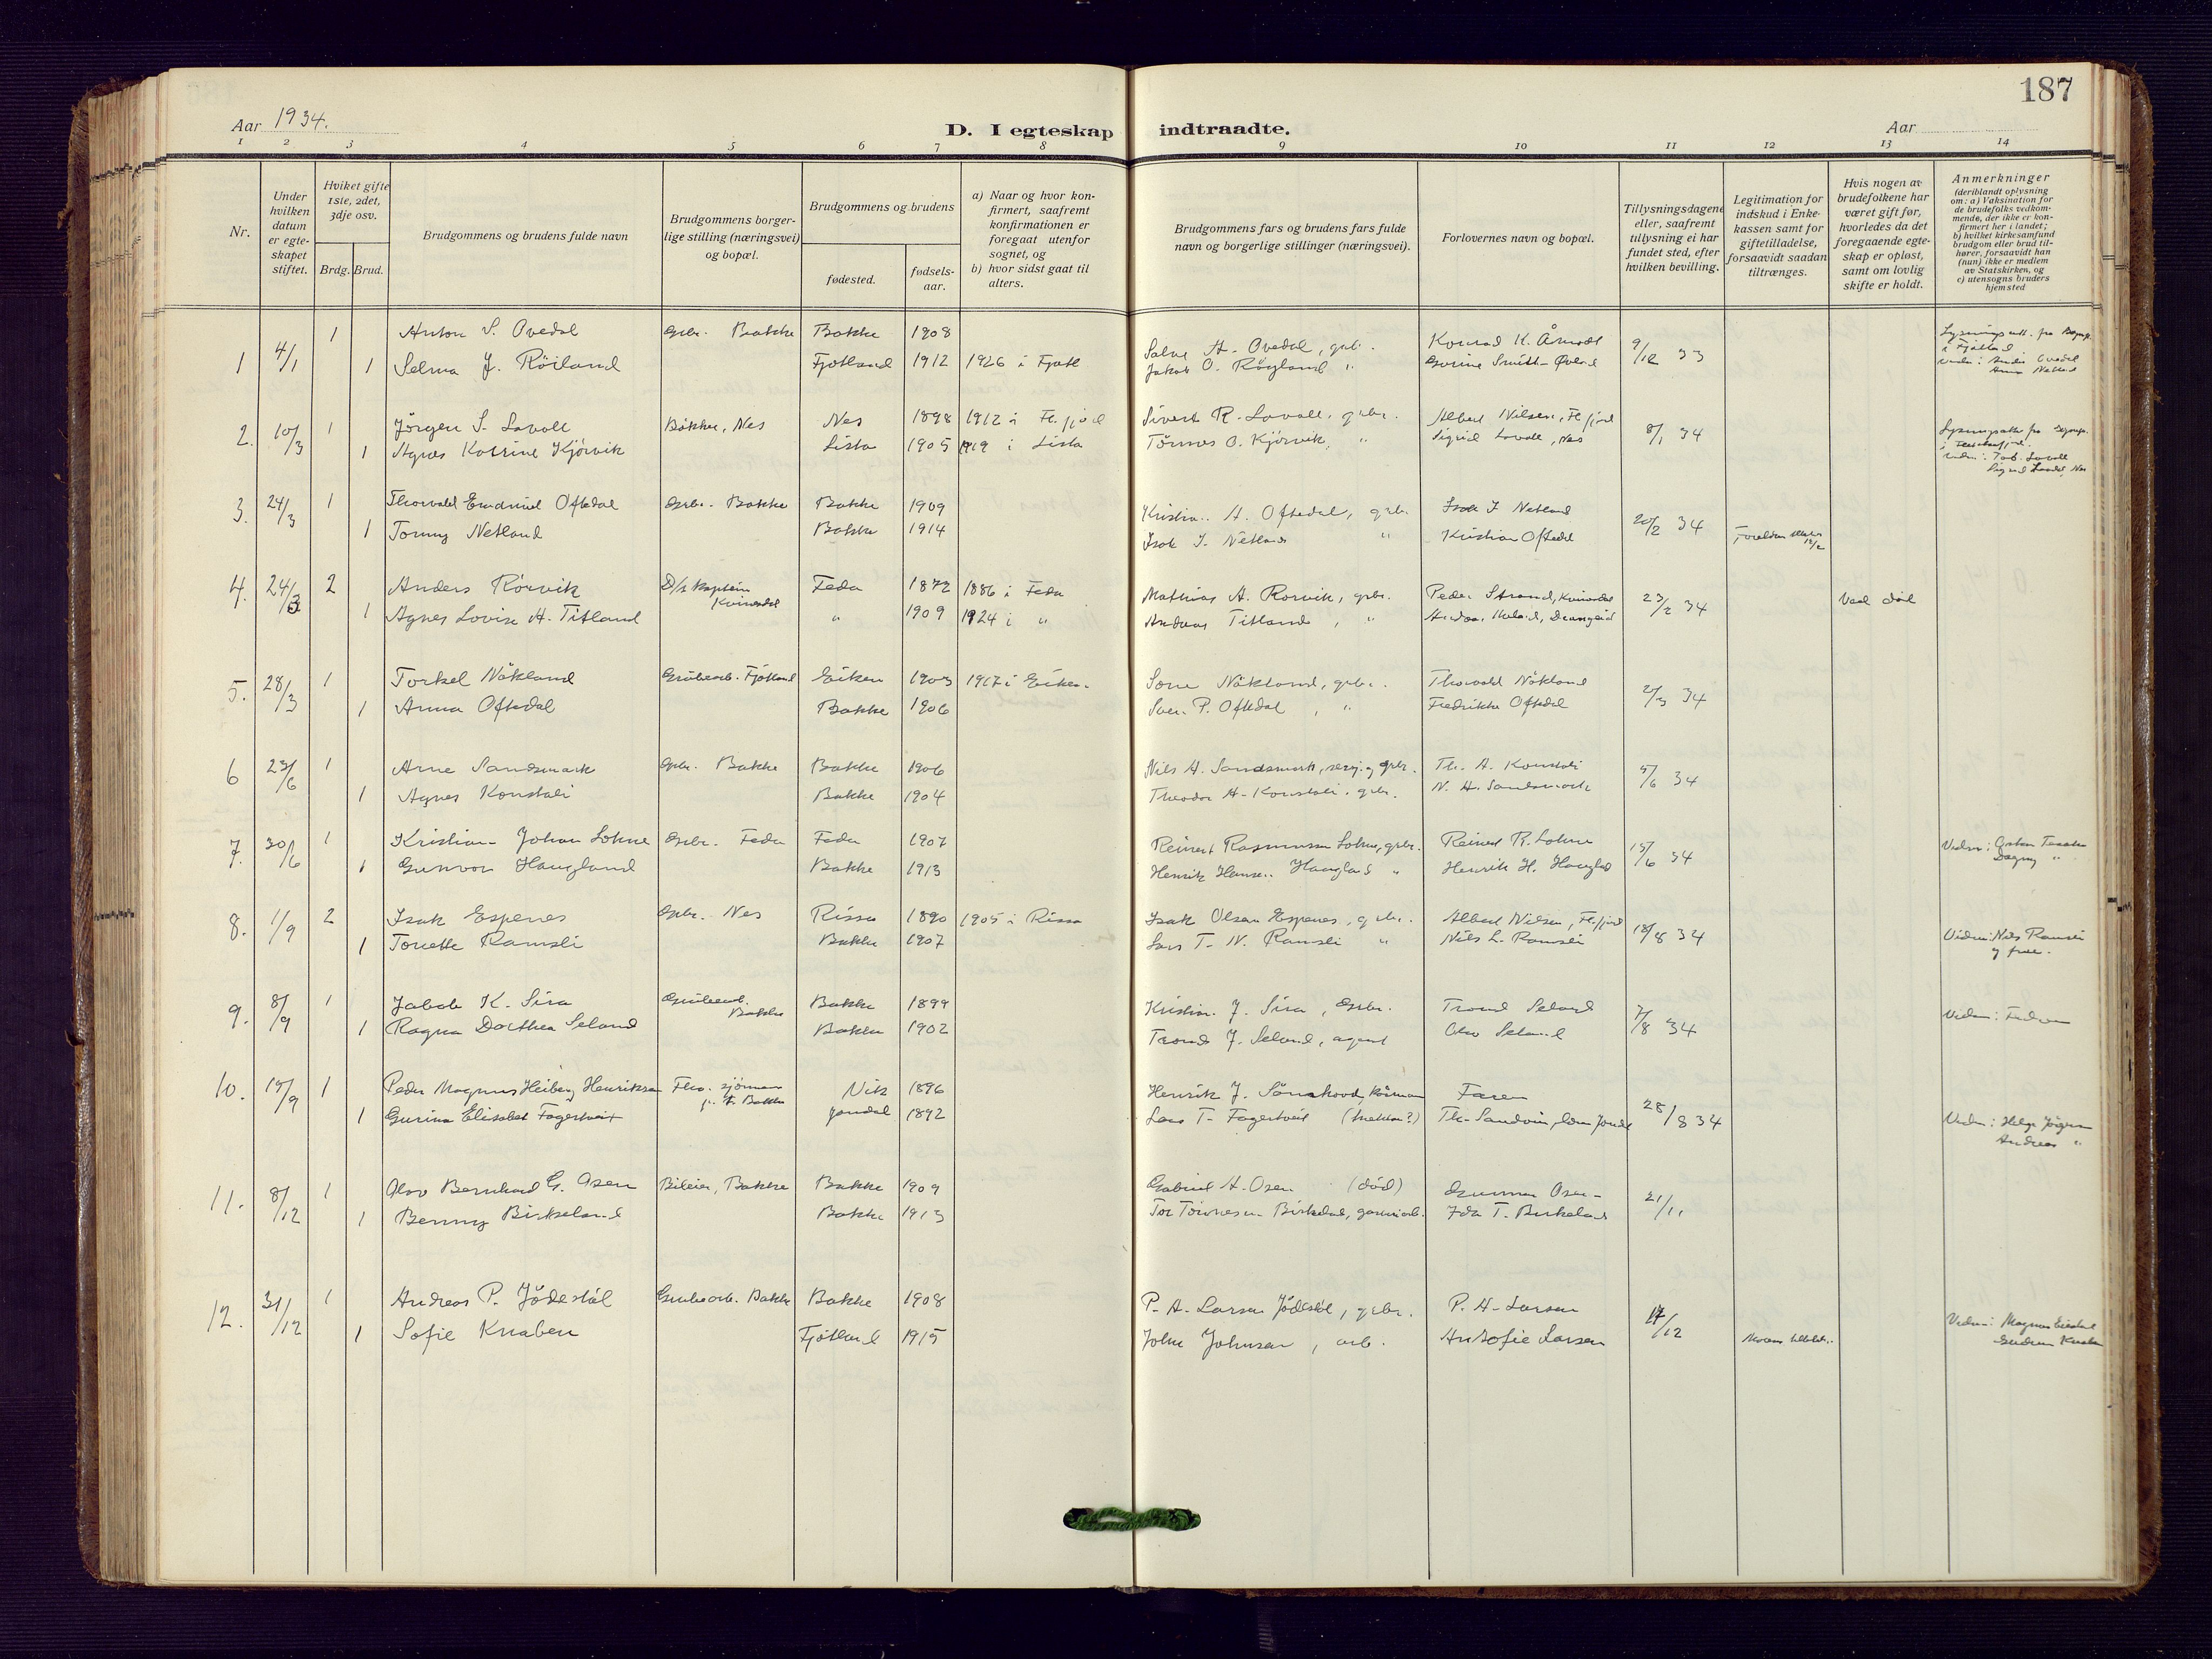 187
Aar 1934.
D. I egteskap indtraadte.
Aar
1 2 3 4 5 6 7 8 9 10 11 12 13 14
Nr.
Under hvilken datum er egte-skapet stiftet.
Hvilket gifte 1ste, 2det, 3dje osv.
Brdg. Brud.
Brudgommens og brudens fulde navn
Brudgommens borger-lige stilling (næringsvei) og bopæl.
Brudgommens og brudens
fødested.
fødsels-aar.
a) Naar og hvor kon-firmert, saafremt konfirmationen er foregaat utenfor sognet, og
b) hvor sidst gaat til alters.
Brudgommens fars og brudens fars fulde navn og borgerlige stillinger (næringsvei).
Forlovernes navn og bopæl.
Tillysningsdagene eller, saafremt tillysning ei har fundet sted, efter hvilken bevilling.
Legitimation for indskud i Enke-kassen samt for giftetilladelse, forsaavidt saadan tiltrænges.
Hvis nogen av brudefolkene har været gift før, hvorledes da det foregaaende egte-skap er opløst, samt om lovlig skifte er holdt.
Anmerkninger
(deriblandt oplysning om: a) Vaksination for de brudefolks vedkom-mende, der ikke er kon-firmert her i landet; b) hvilket kirkesamfund brudgom eller brud til-hører, forsaavidt han (hun) ikke er medlem av Statskirken, og c) utensogns bruders hjemsted
1 4/1 1 Anton S. Ovedal Gbr. Bakke Bakke 1908 Salve A. Ovedal, gbr. Konrad K. Åmodt 9/12 33
1 Selma J. Röiland Fjotland 1912 1926 i Fjotl Jakob O. Röyland " Gurine Smith-Øvland
2. 10/3 1 Jörgen S. Lavoll Bakke, Nes Nes 1898 1912 i Fl.fjord Sivert R. Lavoll, gbr. Albert Nilsen, Fl.fjord 8/1 34
1 Agnes Katrine Kjörvik Lista 1905 1919 i Lista Tönnes O. Kjörvik, " Sigrid Lavoll, Nes
3. 24/3 1 Thorvald Emanuel Oftedal Gbr. Bakke Bakke 1909 Kristian A. Oftedal, gbr. Isak I Netland 20/2 34
1 Tonny Netland Bakke 1914 Isak I. Netland " Kristian Oftedal
4. 24/3 2 Anders Rörvik D/s kaptein Kvinesdal Feda 1872 1886 i Feda Mathias A. Rörvik, gbr. Peder Strand, Kvinesdal 23/2 34 Ved död
1 Agnes Lovise A. Titland " 1909 1924 i " Andreas Titland, "
5. 28/3 1 Torkel Nökland Grubearb. Fjotland Eiken 1903 1917 i Eiken Sone Nökland, gbr. Thorvald Nökland 2/3 34
1 Anna Oftedal Bakke 1906 Sven P. Oftedal, " Fredrikke Oftedal
6 23/6 1 Arne Sandsmark Gbr. Bakke Bakke 1906 Nils A. Sandsmark, gbr. Th. A. Konstali 5/6 34
1 Agnes Konstali Bakke 1904 Theodor A. Konstali, gbr. N. A. Sandsmark
7. 30/6 1 Kristian Johan Lohne Gbr. Feda Feda 1907 Reinert Rasmussen Lohne, gbr. Reinert R. Lohne 15/6 34
1 Gunvor Haugland Bakke 1913 Henrik Hansen Haugland " Henrik H. Haugland Dagny "
8. 1/9 2 Isak Espenes Gbr. Nes Rissa 1890 1905 i Rissa Isak Olsen Espenes, gbr. Albert Nilsen, Fl.fjord 18/8 34 Vidn: Nils Ramsli
1 Tonette Ramsli Bakke 1907 Lars T. N. Ramsli " Nils L. Ramsli og frue.
9. 8/9 1 Jakob K. Sira Grubearb. Bakke Bakke 1899 Kristian J. Sira, Gbr. Trond Seland 7/8 34
1 Ragna Dorthea Seland Bakke 1902 Trond J. Seland, agent Olav Seland
10. 15/9 1 Peder Magnus Heiberg Henriksen sjömann Vik 1896 Henrik J. Faren 28/8 34
1 Gurina Elisabet Fagertveit Jondal 1892 Lars T. Fagertveit Th. Sandvin Andreas "
11. 8/12 1 Olav Bernhard G. Osen Bileier, Bakke Bakke 1909 Gabriel A. Osen (död) Gunnar Osen 21/11
1 Benny Birkeland Bakke 1913 Ida T. Birkeland
12. 31/12 1 Andreas P. Jödestöl Grubearb. Bakke Bakke 1908 P. A. Larsen Jödestöl, gbr. P. A. Larsen 14/12
1 Sofie Knaben Fjotland 1915 John Johnsen, arb. An Sofie Larsen Gudrun Knaben